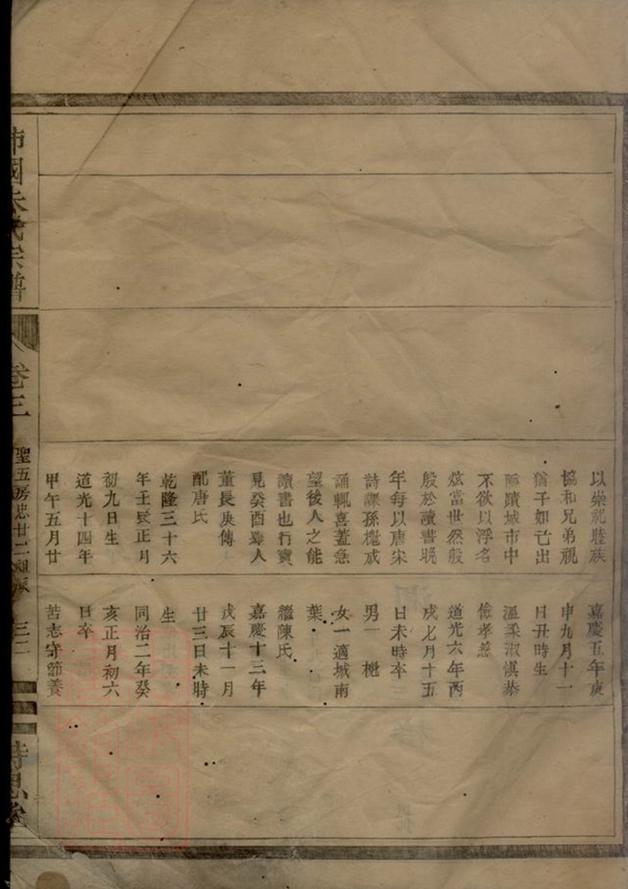 以崇祀睦族
協和兄弟視
猶子如己出
跡城市中
不欲以浮名
炫當世然殷
殷於讀書晚
年每以唐宋
詩課孫
誦輒喜蓋急
望後人之能
讀書也行實
見癸酉舉人
董長庚傳
配唐氏
乾隆三十六
年壬正月
初九日生
道光十四年
甲午五月廿
嘉慶五年庚
申九月十一
日丑時生
溫柔淑慎恭
儉孝慈
道光六年丙
戌七月十五
日未時卒
男一
女一適城南
葉
繼陳氏
嘉慶十三年
戊辰十一月
廿三日未時
生
同治二年癸
亥正月初六
日卒
苦志守節養
國朱氏宗譜
卷三
聖五房忠廿二
時思堂